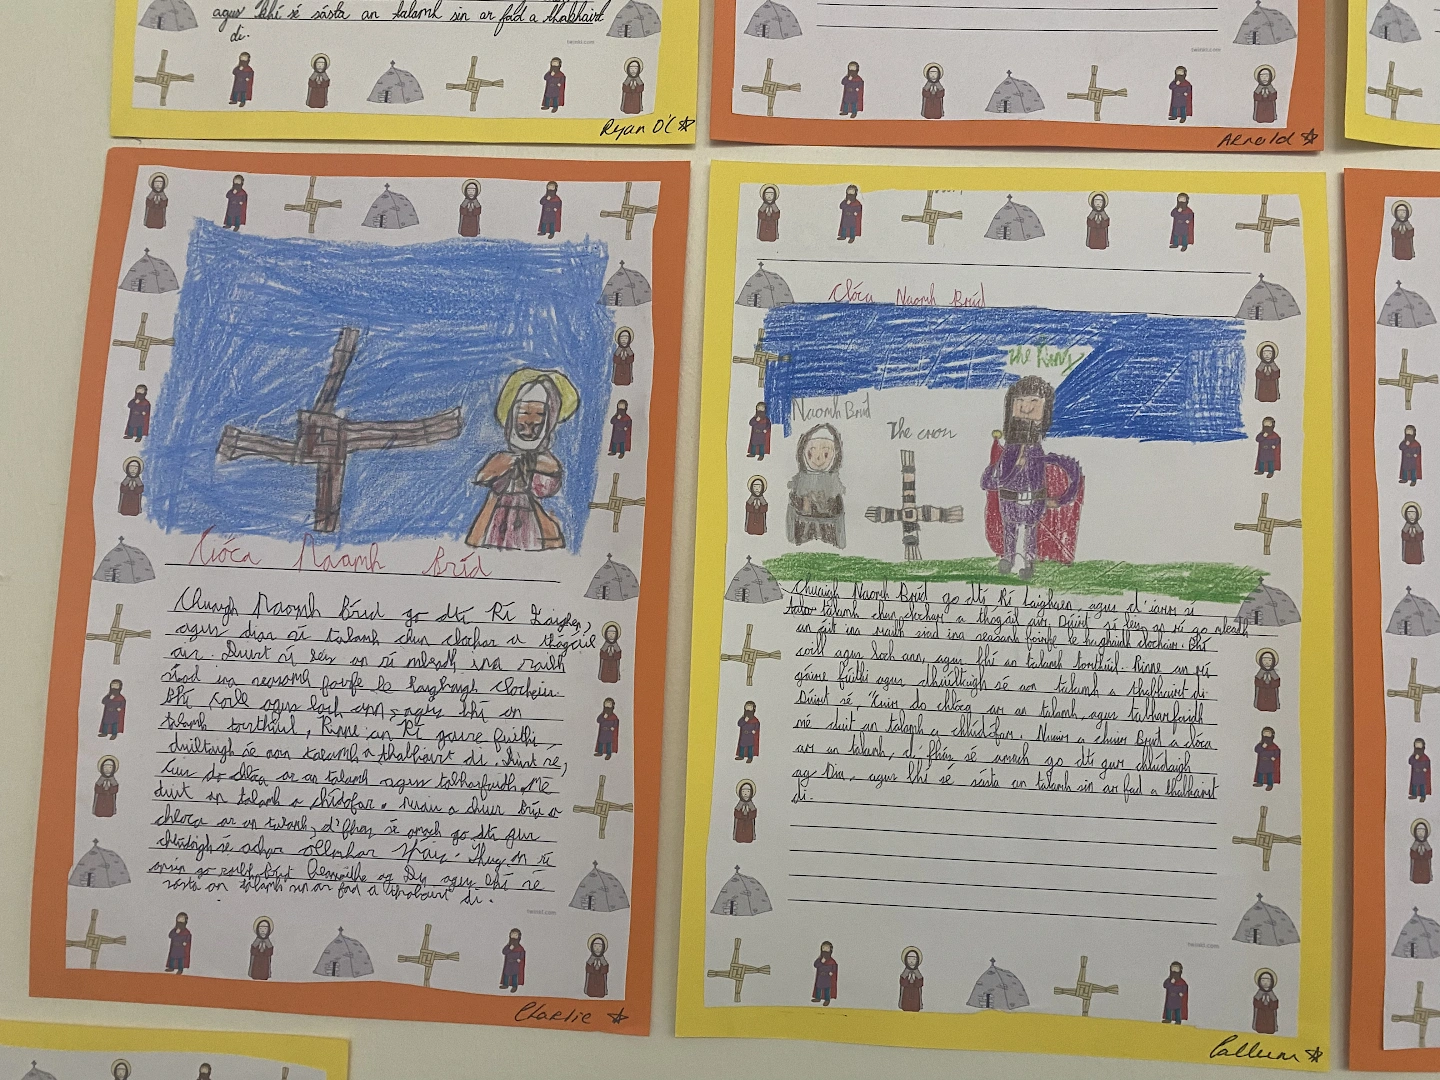 agus bhí sé sásta an talamh sin ar fad a thabhairt
di.
twinkl.com
Ryan O'C
twinkl.com
Arnold
Clóca Naomh Bríd
Chuaigh Naomh Bríd go dtí Rí Laighen,
agus diarr sí talamh chun clochar a thógáil
air. Duirt sí leis an rí mbeadh ina raibh
siad ina seasamh foirfe le haghaigh clochair.
Bhí coill agus loch ann, agus bhí an
talamh torthúil, Rinne an Rí gaire fuithi
duiltaigh sé aon talamh a thabhairt di. Duirt sé,
Cuir do chlóca ar an talamh agus tabharfaidh Mé
duit an talamh a chlúdófar. Nuair a chuir Bríd a
chlóca ar an talamh, d'fhás sé amach go dtí gur
chlúdaigh sé achar ollmhar spáis. Thug an rí
ansin go raibh Bríd beannaithe ag Dia agus bhí sé
sásta an talamh sin ar fad a thabairt di.
twinkl.com
Charlie
Clóca Naomh Bríd
the King
Naomh Bríd
The cross
Chuaigh Naomh Bríd go dtí Rí Laighean, agus d'iarr sí
talamh chun clochar a thógáil air. Dúirt sí leis an rí go mbeadh
an áit ina raibh siad ina seasamh foirfe le haghaidh clochair. Bhí
coill agus loch ann, agus bhí an talamh torthúil. Rinne an rí
gáire fúithi agus dhiúltaigh sé aon talamh a thabhairt di.
Dúirt sé, "Cuir do chlóca ar an talamh, agus tabharfaidh
mé duit an talamh a chlúdófar. Nuair a chuir Bríd a clóca
ar an talamh, d'fhás sé amach go dtí gur chlúdaigh
ag Dia, agus bhí sé sásta an talamh sin ar fad a thabhairt
di.
twinkl.com
Callum